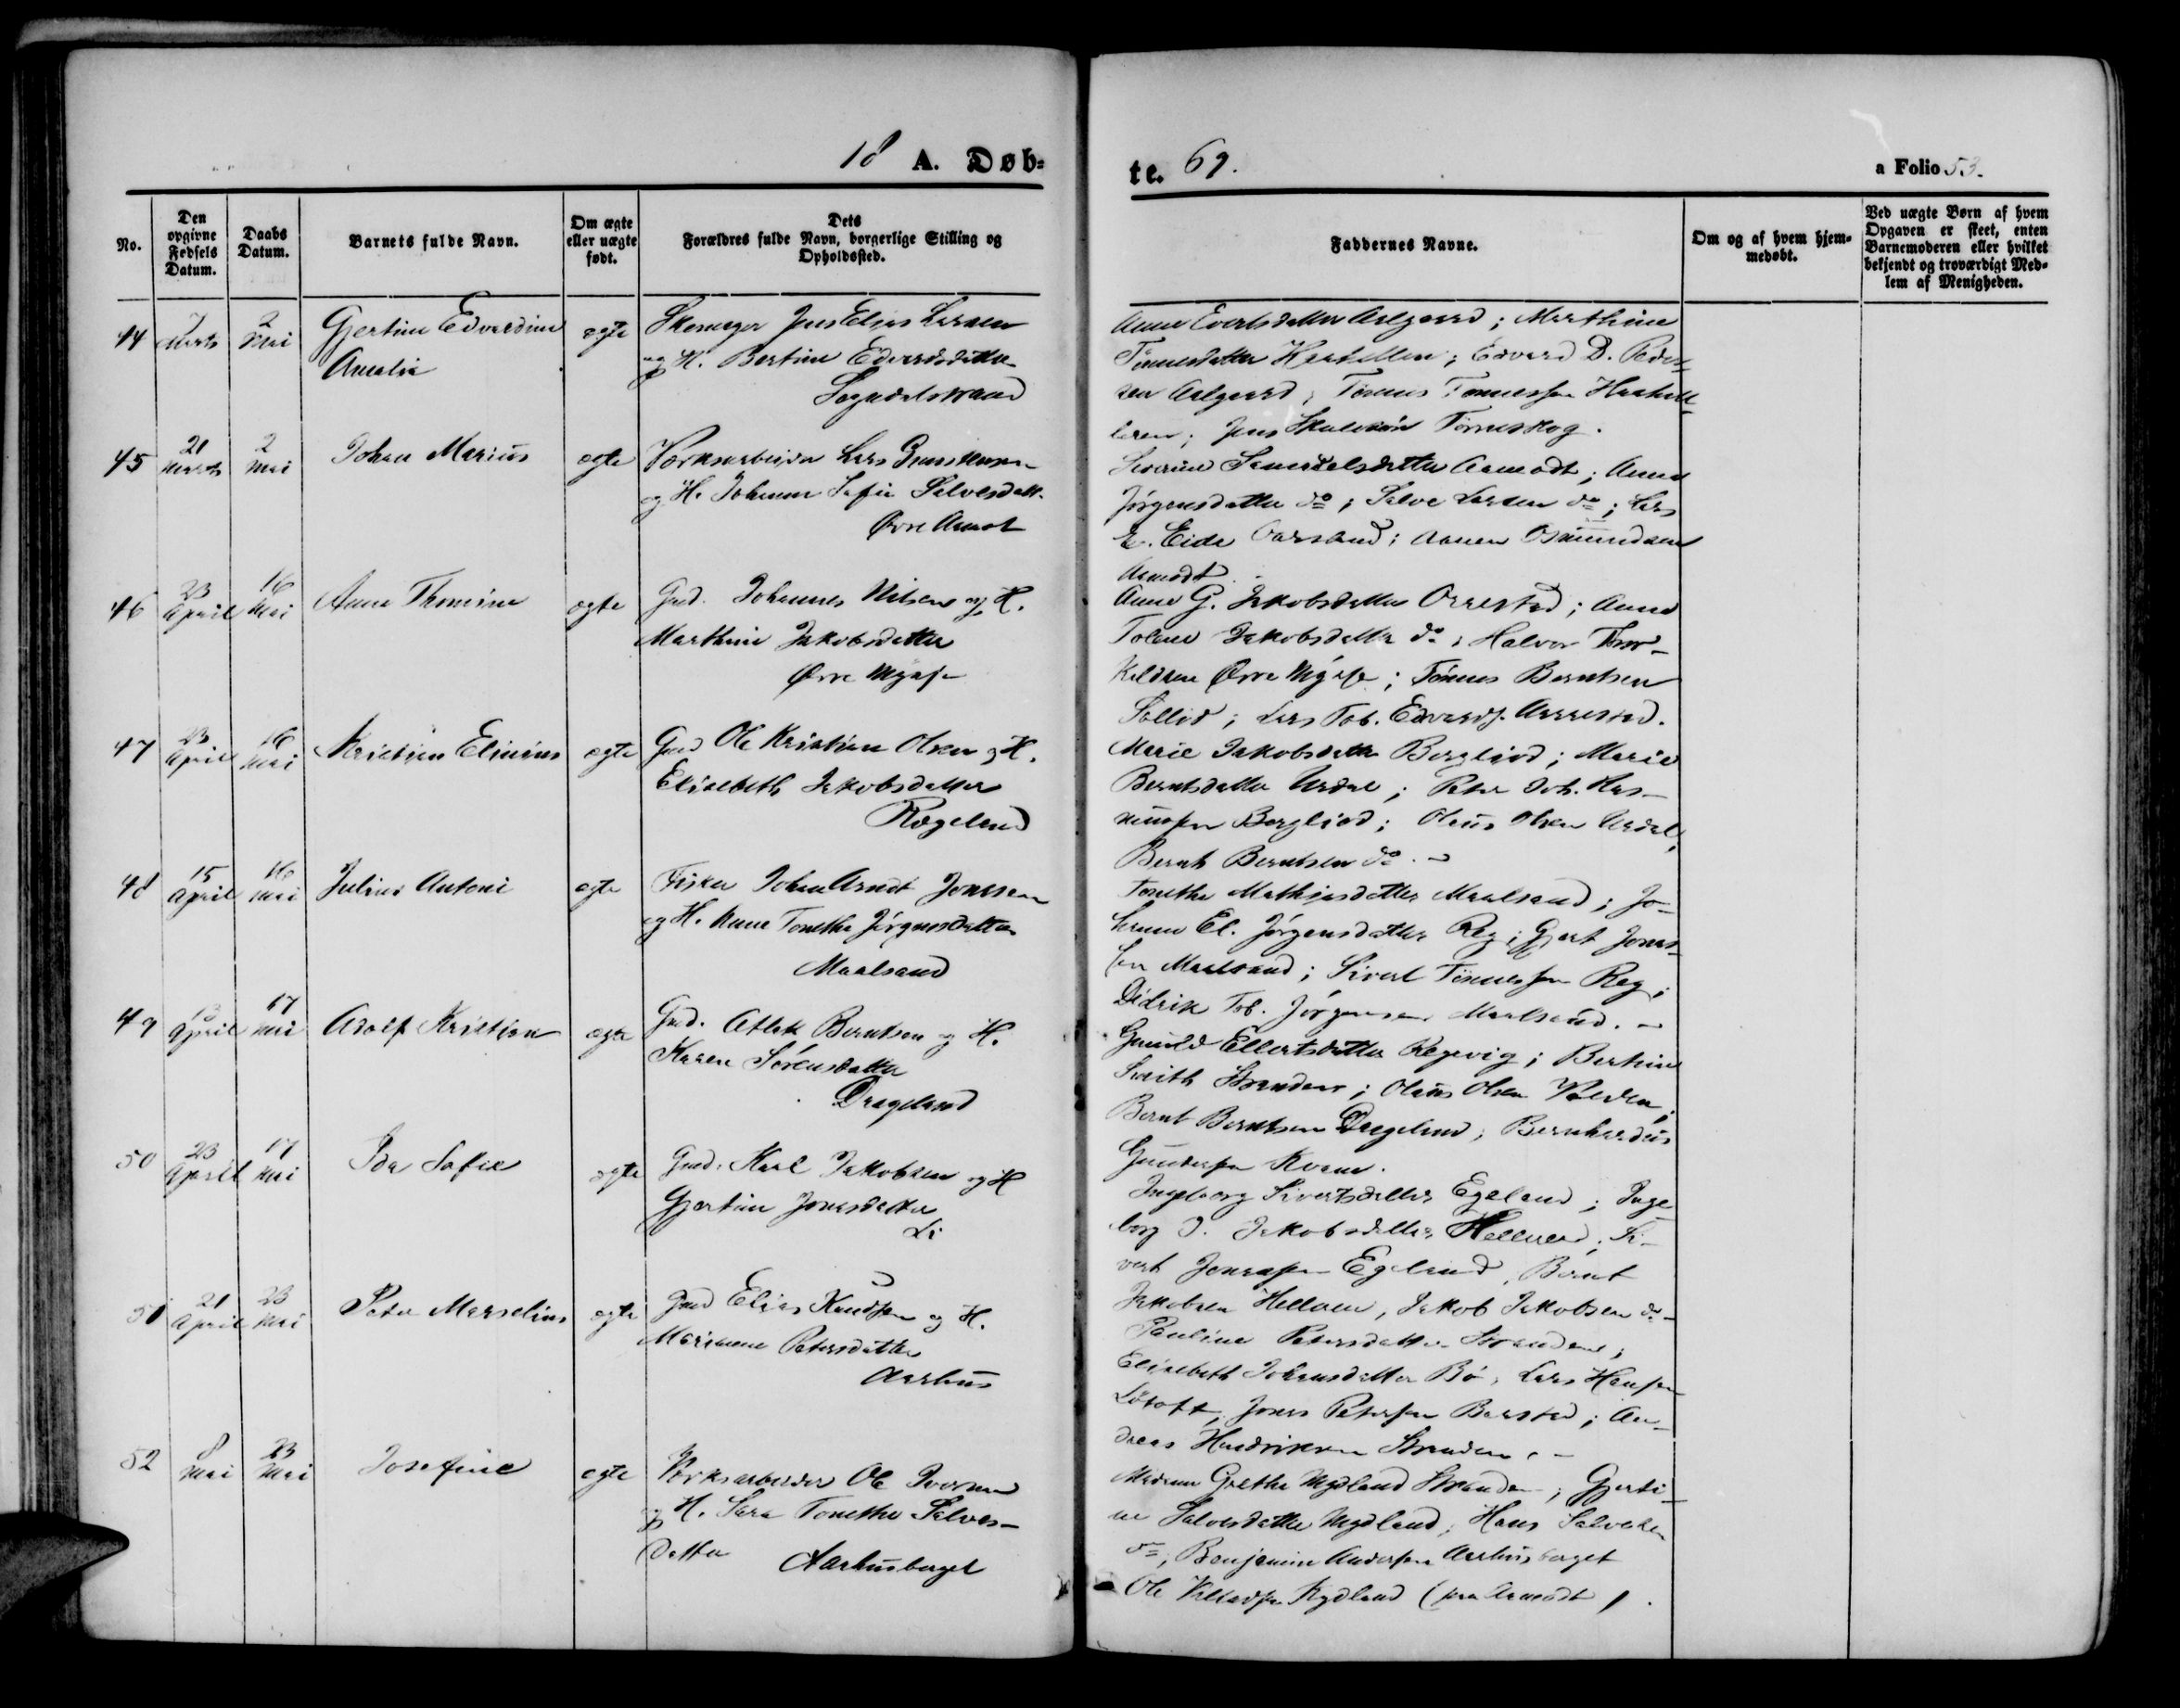 18 A. Døb-
te. 69.
a Folio 53.
No.
Den opgivne Fødsels Datum.
Daabs Datum.
Barnets fulde Navn.
Om ægte eller uægte født.
Dets Forældres fulde Navn, borgerlige Stilling og Opholdssted.
Faddernes Navne.
Om og af hvem hjem-
medøbt.
Ved uægte Børn af hvem
Opgaven er skeet, enten
Barnemoderen eller hvilket
bekjendt og troværdigt Med-
lem af Menigheden.
44 7 Marts 2 Mai Gjertine Edvardine ægte Skomager Jens Elias Larsen
Amalia og H. Bertine Edvardsdatter
Sogndalstrand
Anne Evertsdatter Aalgaard; Marthine
Tønnesdatter; Edvard D. Peder-
sen Aalgaard; Tønnes Tønnessen
Jens
45 21 Marts 2 Mai Johan Marius ægte Værksarbeider Lars
og H. Johanne Sofie Salvesdatt.
Øvre Aamot
Severine Samuelsdatter Aamodt; Anne
Jørgensdatter do; Salve Larsen do; Lars
E. Eide; Osmundsen
Aamodt.
46 23 April 16 Mai Anne Thomine ægte Grd. Johannes Nilsen og H.
Marthine Jakobsdatter
Øvre Mysse
Anne G. Jakobsdatter Orrestad; Anne
Tolene Jakobsdatter do; Halvor Thor-
kildsen Øvre Mysse; Tønnes Berntsen
Sollid; Lars Tob. Edvards.
47 23 April 16 Mai Kristian Elinius ægte Grd Ole Kristian Olsen og H.
Elisabeth Jakobsdatter
Rægeland
Marie Jakobsdatter Bergliod; Marie
Berntsdatter Urdal; Peter Joh. Ras-
mussen Bergliod; Olaus Olsen Urdal,
Bernt Berntsen do.
48 15 April 16 Mai Julius Antoni ægte Fisker Johan Arndt Jonassen
og H. Anne Tonethe Jørgensdatter
Maalsand
Tonethe Mathiasdatter Maalsand; Jo-
hanne El. Jørgensdatter Reg; Gjert Jonas-
sen Maalsand; Sivert Tønnessen Reg;
Didrik Tob. Jørgensen Maalsand.
49 13 April 17 Mai Adolf Kristian ægte Grd. Atlak Berntsen og H.
Karen Sørensdatter
Drageland
Gunild Ellertsdatter Regevig; Bertine
Smith Stranden; Olaus Olsen
Bernt Berntsen Drageland; Bernhardus
Gundersen Kvam.
50 23 April 17 Mai Ida Sofie ægte Grd. Karl Jakobsen og H
Gjertine Jonasdatter
Li
Ingeborg Sivertsdatter Egeland; Inge-
borg J. Jakobsdatter Helleren; Si-
vert Jonassen Egeland, Bernt
Jakobsen Helleren, Jakob Jakobsen do
51 21 April 23 Mai Peder Marselius ægte Grd Elias Knudsen og H.
Marianne Petersdatter
Aarhus
Pauline Petersdatter Stranden;
Elisabeth Johansdatter Bø; Lars Hansen
Løtoft, Jonas Petersen Barstad; An-
dreas Hendriksen Stranden.
52 8 Mai 23 Mai Josefine ægte Værksarbeider Ole Iversen
og H. Sara Tonethe Salves-
datter Aarhusberget
Madame Grethe Mydland Stranden; Gjerti-
ne Salvesdatter Mydland; Hans Salvesen
do; Benjamin Andersen Aarhusberget
Ole Villadsen Rydland (paa Aamodt).